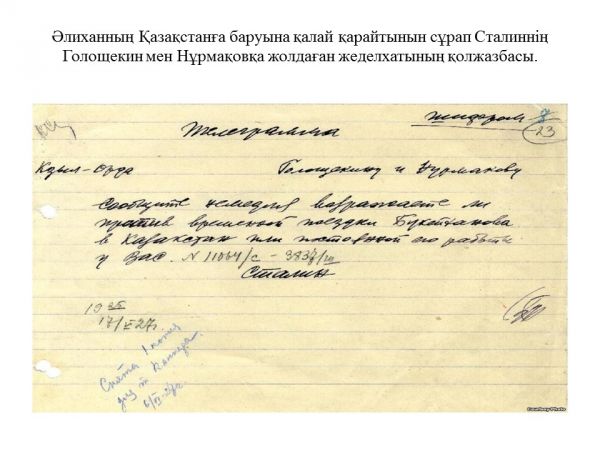 Әлиханның Қазақстанға баруына қалай қарайтынын сұрап Сталиннің
Голощекин мен Нұрмақовқа жолдаған жеделхатының қолжазбасы.
шифром
23
Телеграмма
Кзыл-орда Голощекину и Нурмакову
Сообщите немедля возражаете ли
против временной поездки Букейханова
в Казакстан или постоянной его работы
у Вас. N 11064/с - 3837/ш
Сталин
17/V-27г.
Снята 1 копия
для т.
Courtesy Photo